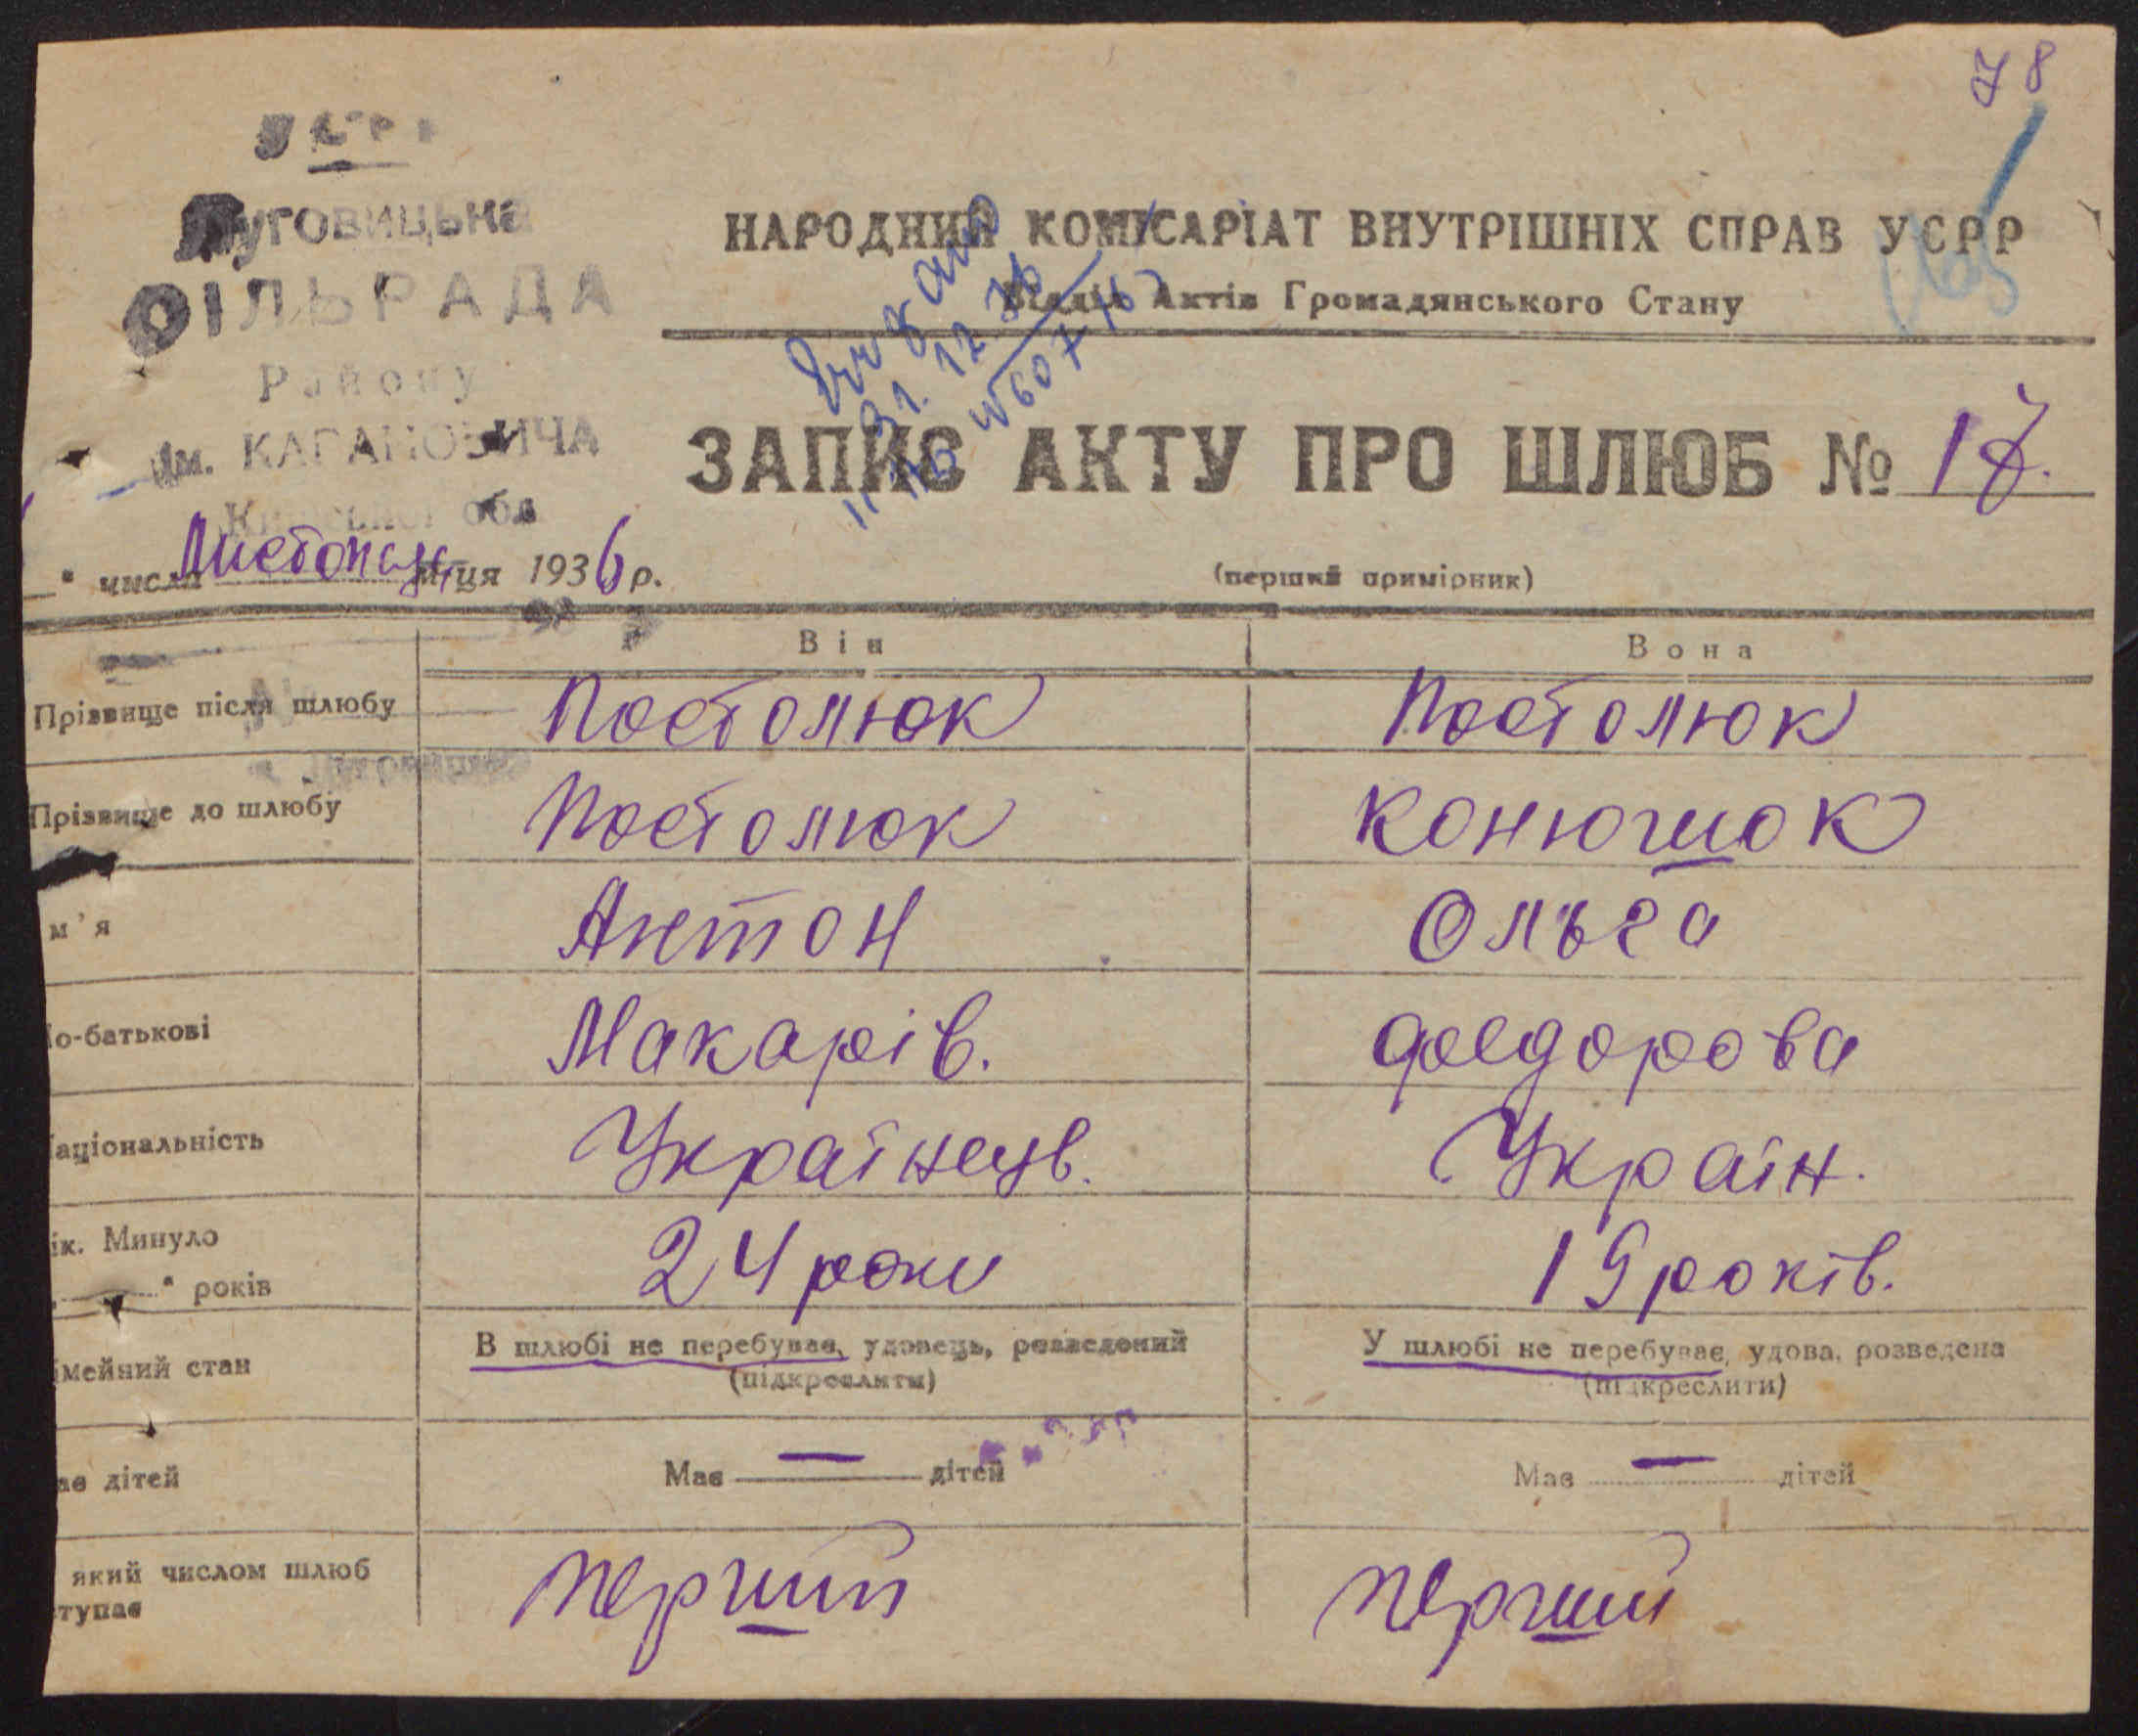 78
УСРР
Луговицька
СІЛЬРАДА
Району
ім. КАГАНОВИЧА
Київської обл
НАРОДНИЙ КОМІСАРІАТ ВНУТРІШНІХ СПРАВ УСРР
Відділ Актів Громадянського Стану
31.12.76
ЗАПИС АКТУ ПРО ШЛЮБ № 17.
" числа Листопад м-ця 1936 р.
(перший примірник)
Він Вона
Прізвище після шлюбу Постолюк Постолюк
Прізвище до шлюбу Постолюк Конюшок
м'я Антон Ольга
о-батькові Макарів. Федорова
аціональність Українець. Україн.
ік. Минуло
" років 24 роки 19 років.
імейний стан В шлюбі не перебуває, удовець, розведений У шлюбі не перебуває, удова, розведена
(підкреслити) (підкреслити)
ає дітей Має — дітей Має — дітей
який числом шлюб
ступає Перший Перший